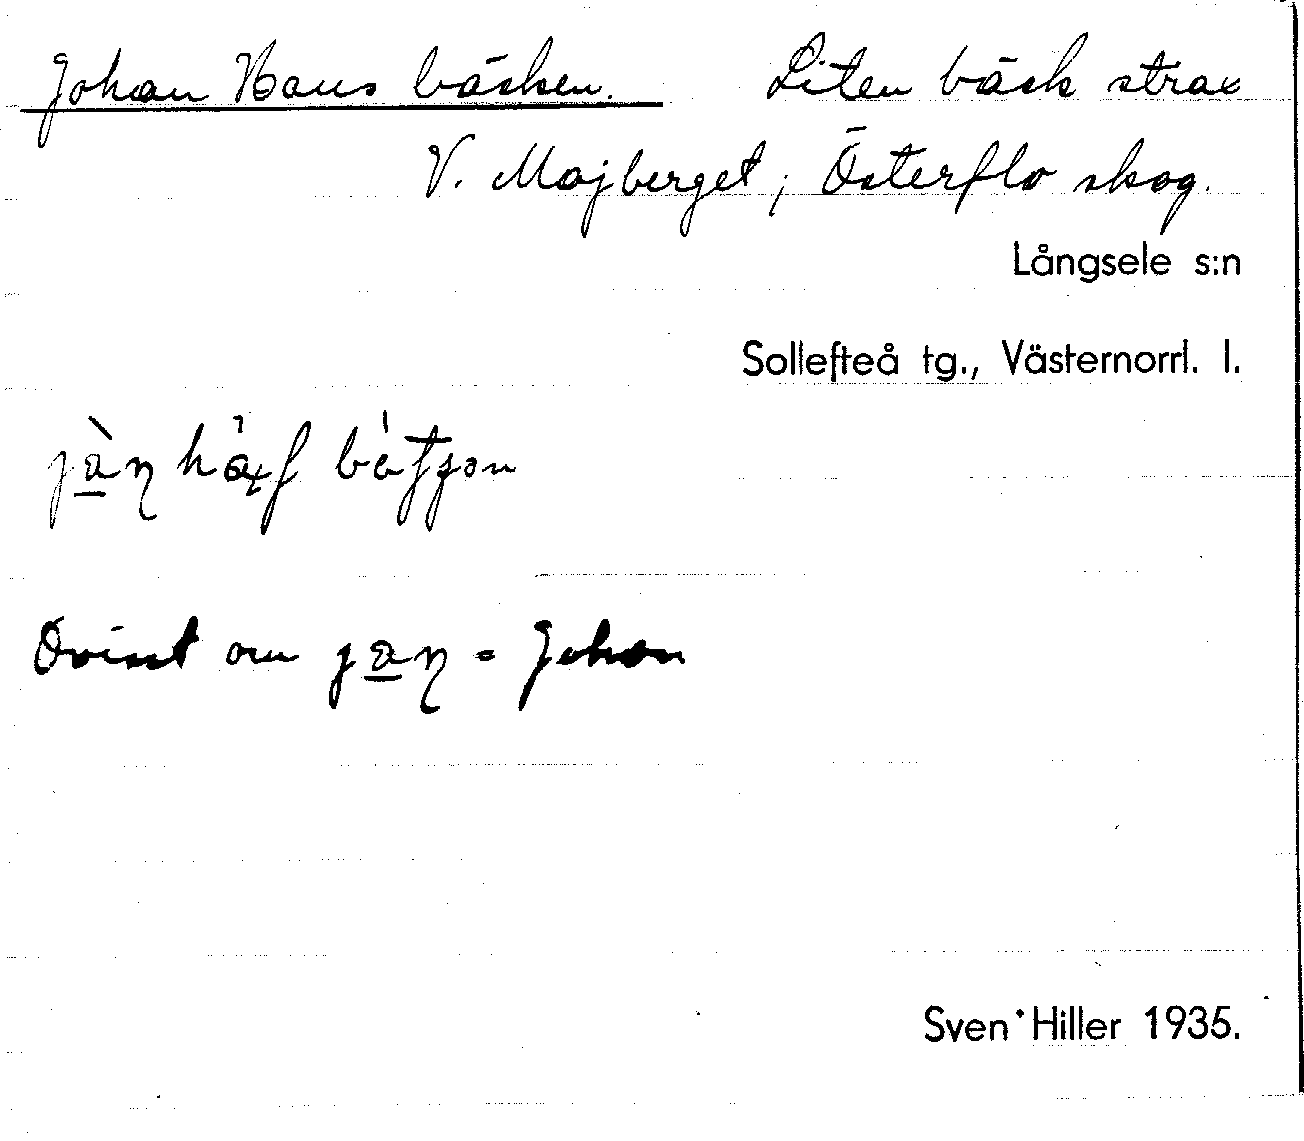 Johan Hans bäcken. Liten bäck strax
V. Majberget, Österflo skog.
Långsele s:n
Sollefteå tg., Västernorrl. l.
Ovisst om = Johan
Sven Hiller 1935.